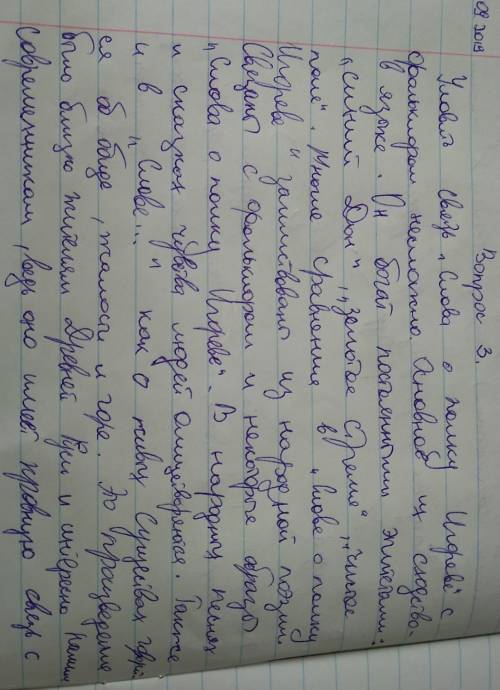 09.2019
Вопрос 3.
Уловить связь „Слова о полку Игореве" с
фольклором несложно. Основное из сходство -
в языке. Он богат постоянными эпитетами:
„синий Дон", „золотое стремя", „чистое
поле". Многие сравнения в „Слове о полку
Игореве" заимствованы из народной поэзии.
Связаны с фольклором и некоторые образы
„Слова о полку Игореве". В народных песнях
и сказках чувства людей олицетворяются. Также
и в „Слове..." как о живых существах говорит-
ся об обиде, жалости и горе. Это произведение
было близко жителям Древней Руси и интересно нашим
современникам, ведь оно имеет кровную связь с